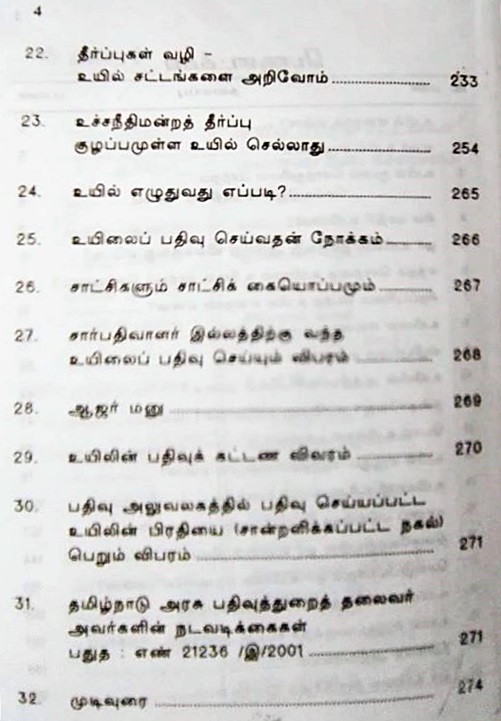 4
22. தீர்ப்புகள் வழி -
உயில் சட்டங்களை அறிவோம் ........................ 233
23. உச்சநீதிமன்றத் தீர்ப்பு
குழப்பமுள்ள உயில் செல்லாது ........................ 254
24. உயில் எழுதுவது எப்படி? ........................ 265
25. உயிலைப் பதிவு செய்வதன் நோக்கம் ........... 266
26. சாட்சிகளும் சாட்சிக் கையொப்பமும் ........... 267
27. சார்பதிவாளர் இல்லத்திற்கு வந்த
உயிலைப் பதிவு செய்யும் விபரம் .................. 268
28. ஆஜர் மனு ........................ 269
29. உயிலின் பதிவுக் கட்டண விவரம் .................. 270
30. பதிவு அலுவலகத்தில் பதிவு செய்யப்பட்ட
உயிலின் பிரதியை (சான்றளிக்கப்பட்ட நகல்)
பெறும் விபரம் ........................ 271
31. தமிழ்நாடு அரசு பதிவுத்துறைத் தலைவர்
அவர்களின் நடவடிக்கைகள்
பதுத : எண் 21236 /இ/2001 ........................ 271
32. முடிவுரை ........................ 274